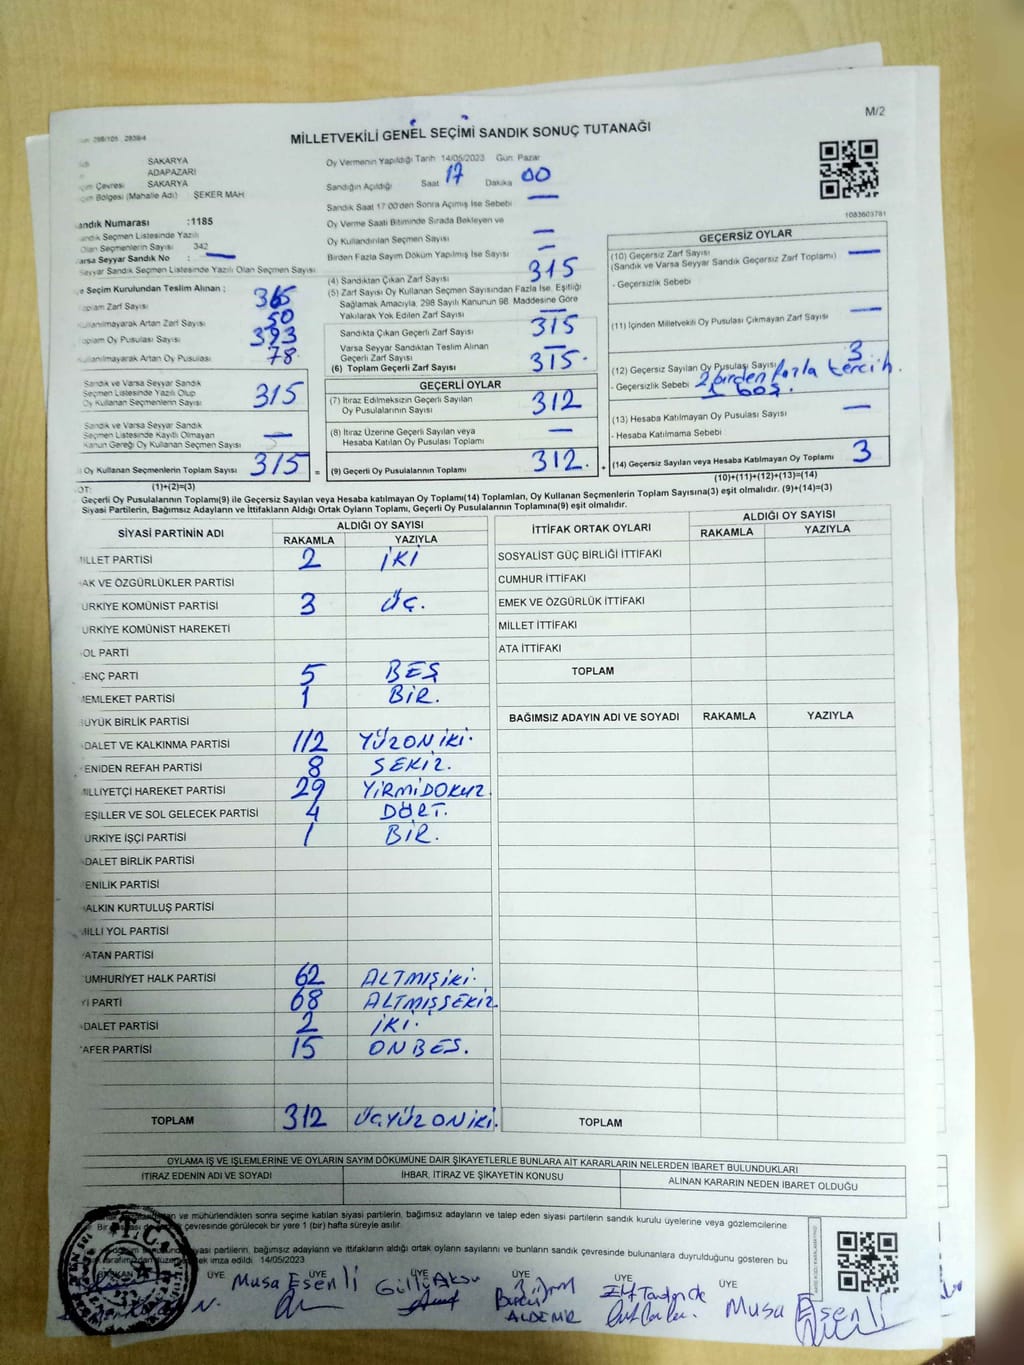 M/2
298/105 2839/4
MİLLETVEKİLİ GENEL SEÇİMİ SANDIK SONUÇ TUTANAĞI
SAKARYA
ADAPAZARI
Çevresi SAKARYA
Bölgesi (Mahalle Adı) ŞEKER MAH
andık Numarası :1185
andık Seçmen Listesinde Yazılı
Olan Seçmenlerin Sayısı 342
arsa Seyyar Sandık No : —
eyyar Sandık Seçmen Listesinde Yazılı Olan Seçmen Sayısı
Oy Vermenin Yapıldığı Tarih 14/05/2023 Gün: Pazar
Sandığın Açıldığı Saat 17 Dakika 00
Sandık Saat 17.00'den Sonra Açılmış İse Sebebi —
Oy Verme Saati Bitiminde Sırada Bekleyen ve
Oy Kullandırılan Seçmen Sayısı —
Birden Fazla Sayım Döküm Yapılmış İse Sayısı —
1083603781
e Seçim Kurulundan Teslim Alınan ;
oplam Zarf Sayısı 365
ullanılmayarak Artan Zarf Sayısı 50
oplam Oy Pusulası Sayısı 393
ullanılmayarak Artan Oy Pusulası 78
Sandık ve Varsa Seyyar Sandık
Seçmen Listesinde Yazılı Olup
Oy Kullanan Seçmenlerin Sayısı 315
Sandık ve Varsa Seyyar Sandık
Seçmen Listesinde Kayıtlı Olmayan
Kanun Gereği Oy Kullanan Seçmen Sayısı —
Oy Kullanan Seçmenlerin Toplam Sayısı 315 =
(1)+(2)=(3)
(4) Sandıktan Çıkan Zarf Sayısı 315
(5) Zarf Sayısı Oy Kullanan Seçmen Sayısından Fazla İse, Eşitliği
Sağlamak Amacıyla, 298 Sayılı Kanunun 98. Maddesine Göre
Yakılarak Yok Edilen Zarf Sayısı —
Sandıkta Çıkan Geçerli Zarf Sayısı 315
Varsa Seyyar Sandıktan Teslim Alınan
Geçerli Zarf Sayısı —
(6) Toplam Geçerli Zarf Sayısı 315.
GEÇERLİ OYLAR
(7) İtiraz Edilmeksizin Geçerli Sayılan
Oy Pusulalarının Sayısı 312
(8) İtiraz Üzerine Geçerli Sayılan veya
Hesaba Katılan Oy Pusulası Toplamı —
(9) Geçerli Oy Pusulalarının Toplamı 312. +
GEÇERSİZ OYLAR
(10) Geçersiz Zarf Sayısı —
(Sandık ve Varsa Seyyar Sandık Geçersiz Zarf Toplamı)
- Geçersizlik Sebebi
(11) İçinden Milletvekili Oy Pusulası Çıkmayan Zarf Sayısı —
(12) Geçersiz Sayılan Oy Pusulası Sayısı 3
- Geçersizlik Sebebi 2 birden fazla tercih.
1 boş.
(13) Hesaba Katılmayan Oy Pusulası Sayısı —
- Hesaba Katılmama Sebebi
(14) Geçersiz Sayılan veya Hesaba Katılmayan Oy Toplamı 3
(10)+(11)+(12)+(13)=(14)
OT:
Geçerli Oy Pusulalarının Toplamı(9) ile Geçersiz Sayılan veya Hesaba katılmayan Oy Toplamı(14) Toplamları, Oy Kullanan Seçmenlerin Toplam Sayısına(3) eşit olmalıdır. (9)+(14)=(3)
Siyasi Partilerin, Bağımsız Adayların ve İttifakların Aldığı Ortak Oyların Toplamı, Geçerli Oy Pusulalarının Toplamına(9) eşit olmalıdır.
SİYASİ PARTİNİN ADI ALDIĞI OY SAYISI
RAKAMLA YAZIYLA
İLLET PARTİSİ 2 İKİ
AK VE ÖZGÜRLÜKLER PARTİSİ
ÜRKİYE KOMÜNİST PARTİSİ 3 ÜÇ.
ÜRKİYE KOMÜNİST HAREKETİ
OL PARTİ
ENÇ PARTİ 5 BEŞ
EMLEKET PARTİSİ 1 BİR.
ÜYÜK BİRLİK PARTİSİ
DALET VE KALKINMA PARTİSİ 112 YÜZONİKİ.
ENİDEN REFAH PARTİSİ 8 SEKİZ.
İLLİYETÇİ HAREKET PARTİSİ 29 YİRMİDOKUZ.
EŞİLLER VE SOL GELECEK PARTİSİ 4 DÖRT.
ÜRKİYE İŞÇİ PARTİSİ 1 BİR.
DALET BİRLİK PARTİSİ
ENİLİK PARTİSİ
ALKIN KURTULUŞ PARTİSİ
İLLİ YOL PARTİSİ
ATAN PARTİSİ
UMHURİYET HALK PARTİSİ 62 ALTMIŞİKİ.
Yİ PARTİ 68 ALTMIŞSEKİZ.
DALET PARTİSİ 2 İKİ.
AFER PARTİSİ 15 ONBEŞ.
TOPLAM 312 ÜÇYÜZONİKİ.
İTTİFAK ORTAK OYLARI ALDIĞI OY SAYISI
RAKAMLA YAZIYLA
SOSYALİST GÜÇ BİRLİĞİ İTTİFAKI
CUMHUR İTTİFAKI
EMEK VE ÖZGÜRLÜK İTTİFAKI
MİLLET İTTİFAKI
ATA İTTİFAKI
TOPLAM
BAĞIMSIZ ADAYIN ADI VE SOYADI RAKAMLA YAZIYLA
TOPLAM
OYLAMA İŞ VE İŞLEMLERİNE VE OYLARIN SAYIM DÖKÜMÜNE DAİR ŞİKAYETLERLE BUNLARA AİT KARARLARIN NELERDEN İBARET BULUNDUKLARI
İTİRAZ EDENİN ADI VE SOYADI İHBAR, İTİRAZ VE ŞİKAYETİN KONUSU ALINAN KARARIN NEDEN İBARET OLDUĞU
ve mühürlendikten sonra seçime katılan siyasi partilerin, bağımsız adayların ve talep eden siyasi partilerin sandık kurulu üyelerine veya gözlemcilerine
çevresinde görülecek bir yere 1 (bir) hafta süreyle asılır.
siyasi partilerin, bağımsız adayların ve ittifakların aldığı ortak oyların sayılarını ve bunların sandık çevresinde bulunanlara duyrulduğunu gösteren bu
imza edildi 14/05/2023
BAŞKAN ÜYE ÜYE ÜYE ÜYE ÜYE
Musa Esenli
Aksu
Burcu
ALDEMİR
Musa Esenli